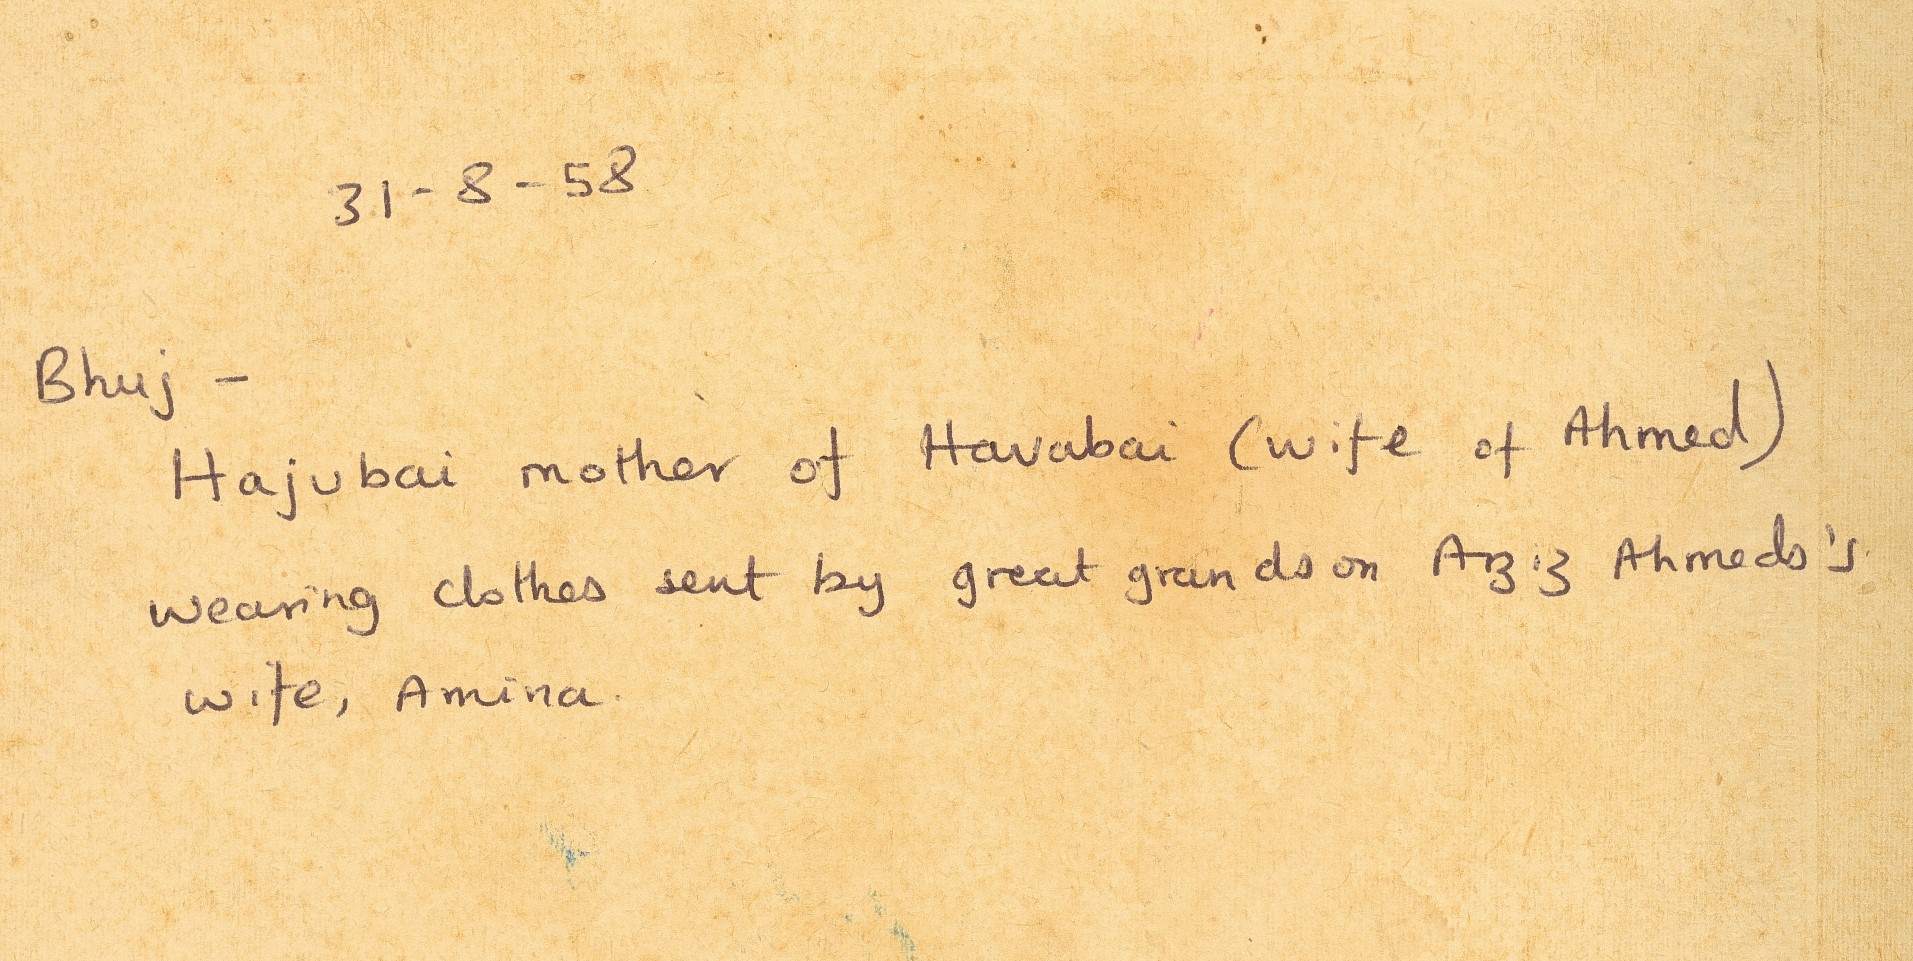 31-8-58
Bhuj -
Hajubai mother of Havabai (wife of Ahmed)
wearing clothes sent by great grandson Aziz Ahmeds's
wife, Amina.